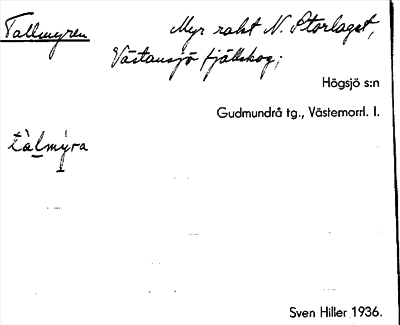 Tallmyren
Myr rakt N. Storlaget,
Västansjö fjällskog;
Högsjö s:n
Gudmundrå tg., Västernorrl. l.
tàlmýra
Sven Hiller 1936.